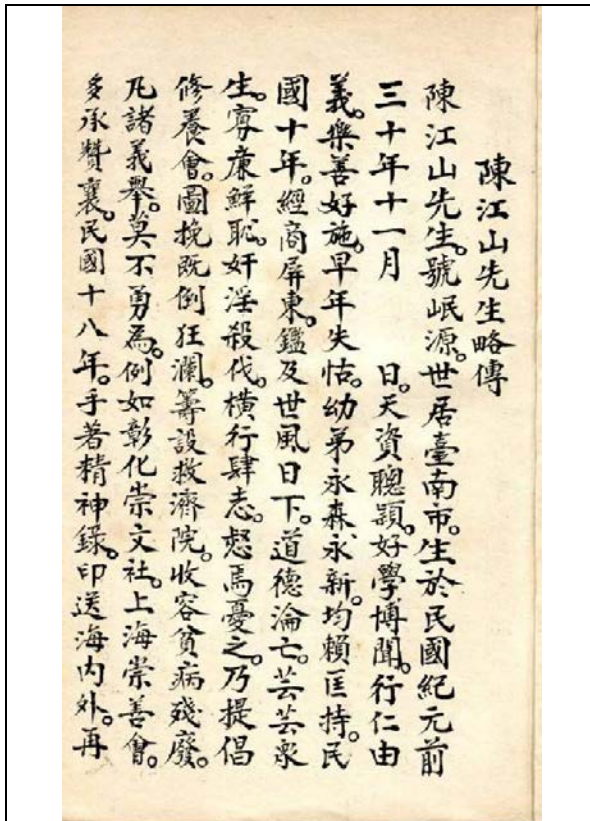 陳江山先生略傳
陳江山先生。號岷源。世居臺南市。生於民國紀元前
三十年十一月　　日。天資聰穎。好學博聞。行仁由
義。樂善好施。早年失怙。幼弟永森永新。均賴匡持。民
國十年。經商屏東。鑑及世風日下。道德淪亡。芸芸眾
生。寡廉鮮恥。奸淫殺伐。橫行肆志。惄焉憂之。乃提倡
修養會。圖挽既倒狂瀾。籌設救濟院。收容貧病殘廢。
凡諸義舉。莫不勇為。例如彰化崇文社。上海崇善會。
多承贊襄。民國十八年。手著精神錄。印送海內外。再